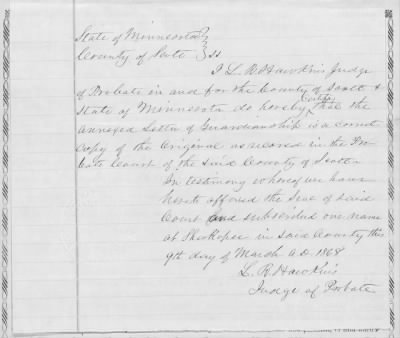 State of Minnesota }
County of Scott } ss
I L. R. Hawkins Judge
of Probate in and for the County of Scott &
State of Minnesota do hereby Certify that the
annexed Letter of Guardianship is a correct
copy of the Original as record in the Pro-
bate Court of the said County of Scott
In testimony whereof we have
hereto affixed the Seal of said
Court and subscribed our name
at Shakopee in said County this
9th day of March A.D. 1868
L. R. Hawkins
Judge of Probate